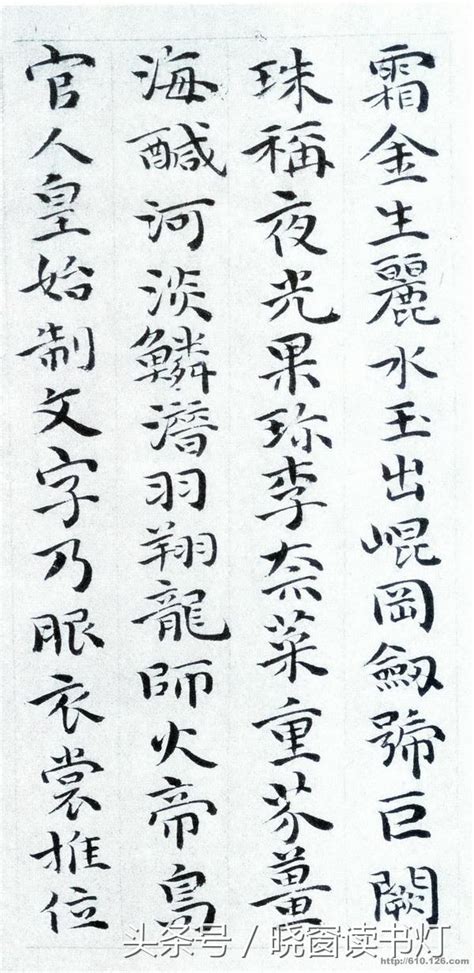 霜金生麗水玉出崐岡劒號巨闕
珠稱夜光果珎李柰菜重芥薑
海醎河淡鱗潛羽翔龍師火帝鳥
官人皇始制文字乃服衣裳推位
头条号 / 晓窗读书灯
http://610.126.com